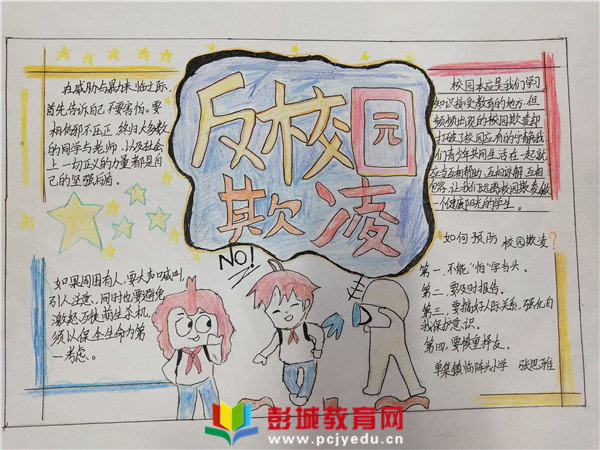 反校园
欺凌
NO!
在威胁与暴力来临之际,
首先告诉自己不要害怕。要
相信邪不压正,终归大多数
的同学与老师,以及社会
上一切正义的力量都是自
己的坚强后盾。
如果周围有人,要大声喊叫,
引人注意,同时也要避免
激起歹徒萌生杀机,
须以保全生命为第
一考虑。
校园本应是我们学习
知识接受教育的地方,但
频频出现的校园欺凌却
打破了校园应有的宁静我
们青少年共同生活在一起就
应当互相帮助,互相谅解,互相
包容,让我们远离校园欺凌,做
一个健康阳光的学生。
如何预防校园欺凌?
第一,不能“怕”字当头。
第二,要及时报告。
第三,要搞好人际关系,强化自
我保护意识。
第四,要慎重择友。
单集镇 小学 张思雅
彭城教育网
www.pcjyedu.cn